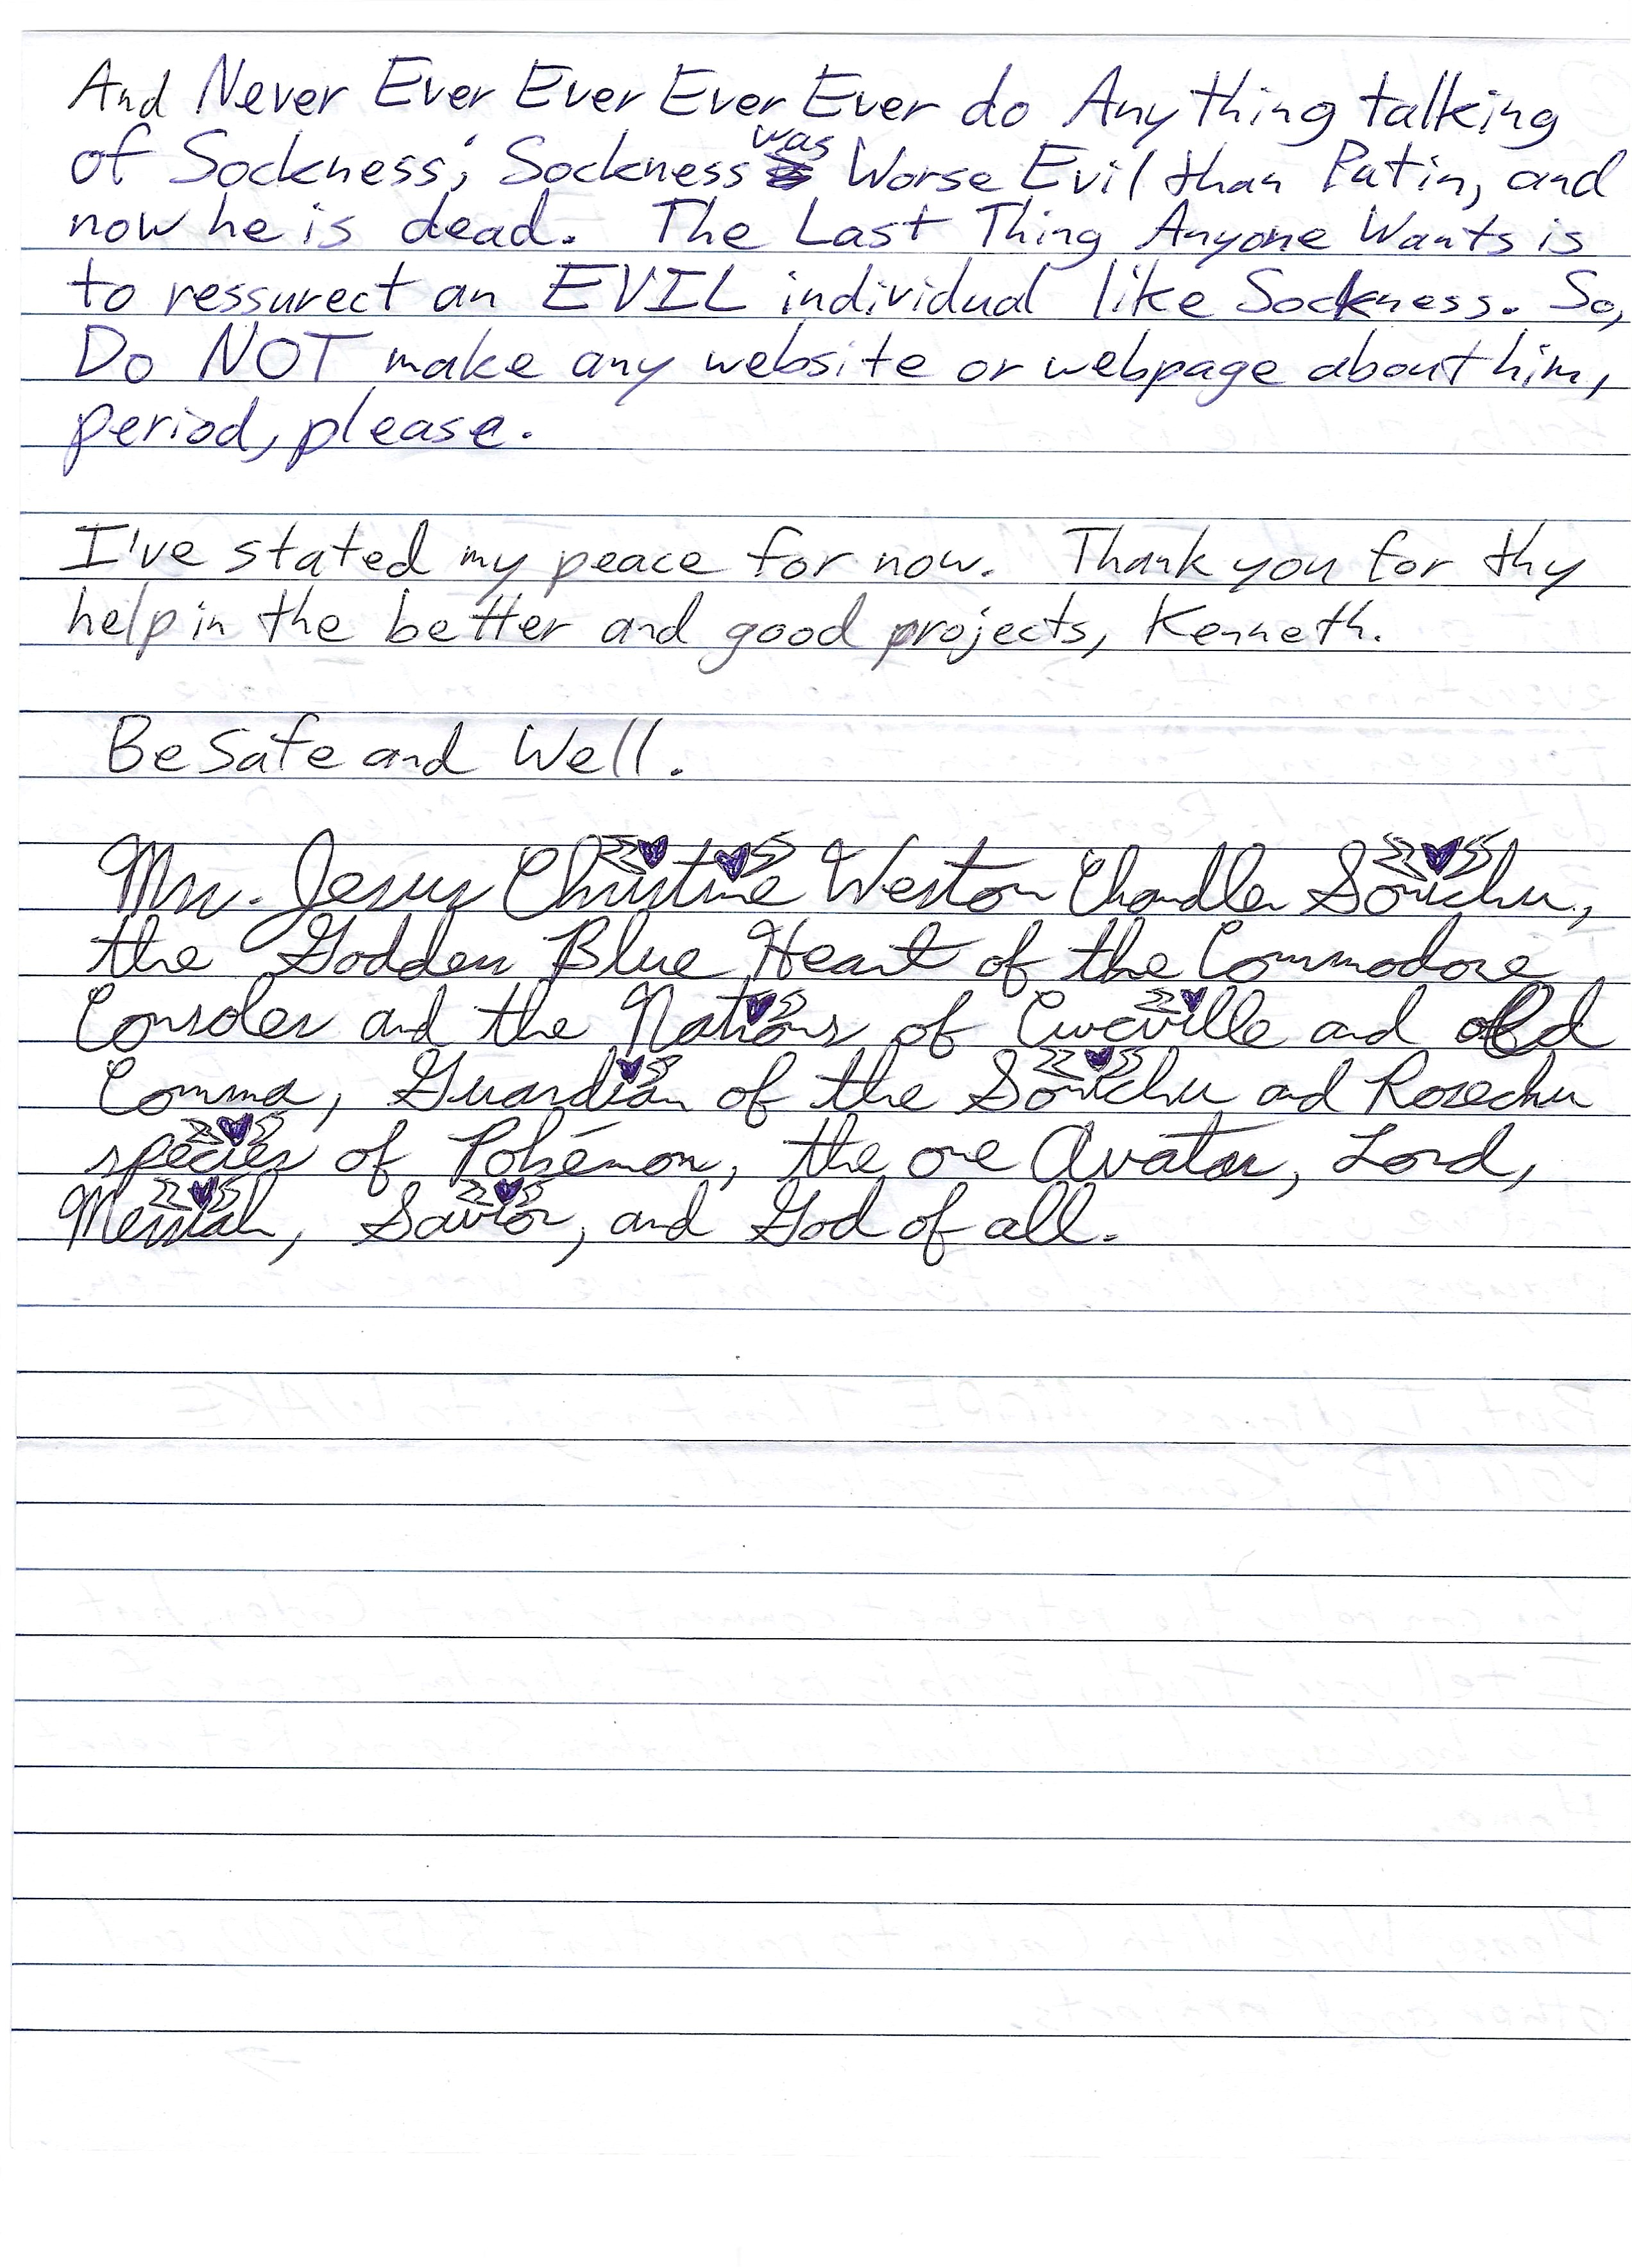 And Never Ever Ever Ever Ever do Anything talking
of Sockness; Sockness was Worse Evil than Putin, and
now he is dead. The Last Thing Anyone Wants is
to ressurect an EVIL individual like Sockness. So,
Do NOT make any website or webpage about him,
period, please.
I've stated my peace for now. Thank you for thy
help in the better and good projects, Kenneth.
Be Safe and Well.
Mrs. Jesus Christine Weston Chandler Sonichu,
the Godden Blue Heart of the Commodore
Consoles and the Nations of Cwcville and old
Comma, Guardian of the Sonichu and Rosechu
species of Pokémon, the one Avatar, Lord,
Messiah, Savior, and God of all.